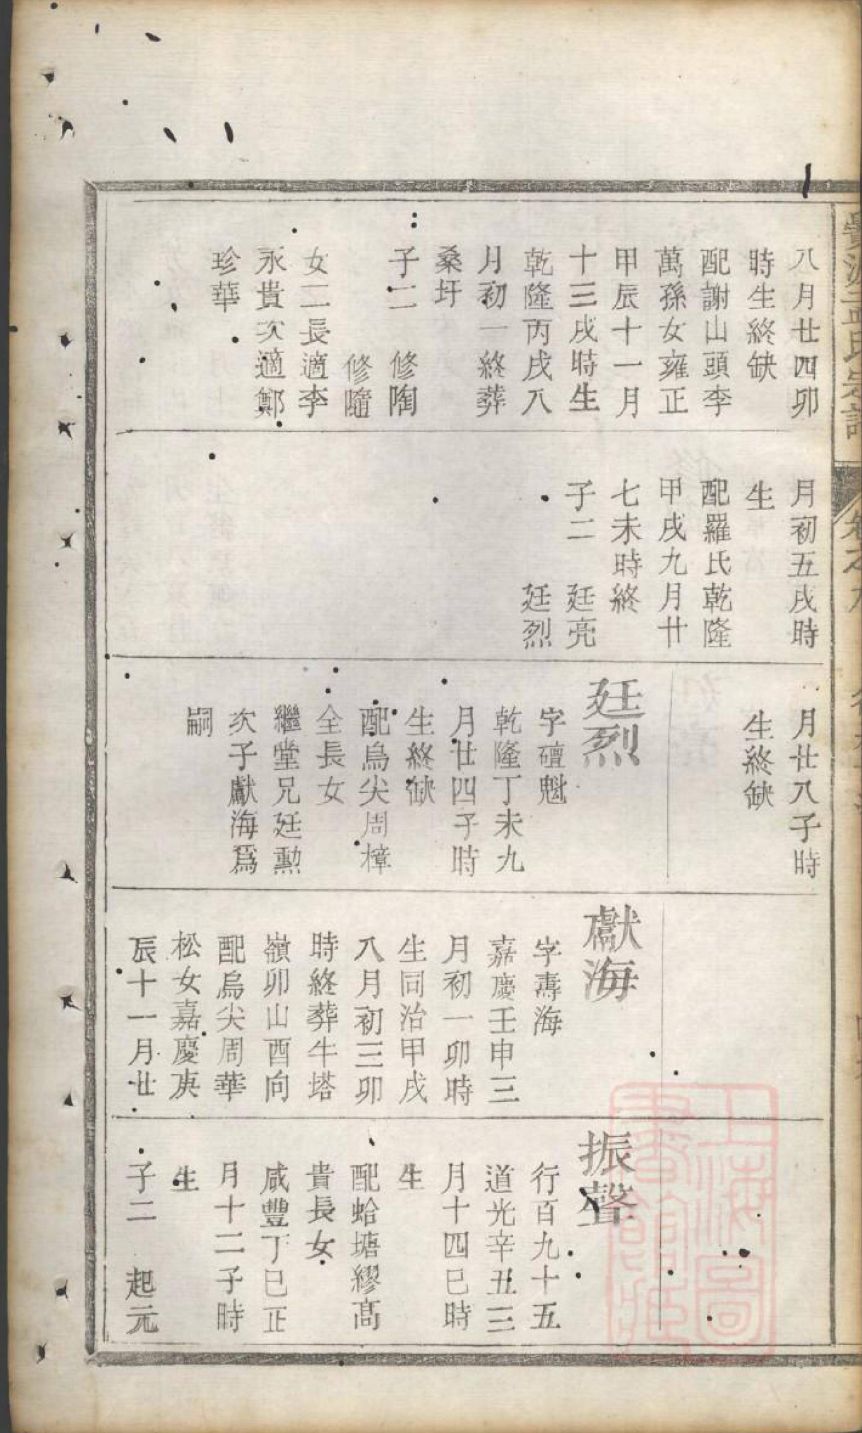 八月廿四卯
時生終缺
配謝山頭李
萬孫女雍正
甲辰十一月
十三戌時生
乾隆丙戌八
月初一終葬
桑圩
子二 修陶
修隨
女二長適李
永貴次適鄭
珍華
月初五戌時
生
配羅氏乾隆
甲戌九月廿
七未時終
子二 廷亮
廷烈
月廿八子時
生終缺
廷烈
字磧魁
乾隆丁未九
月廿四子時
生終缺
配烏尖周樟
全長女
繼堂兄廷勲
次子獻海爲
嗣
獻海
字壽海
嘉慶壬申三
月初一卯時
生同治甲戌
八月初三卯
時終葬牛塔
嶺卯山酉向
配烏尖周華
松女嘉慶庚
辰十一月廿
振聲
行百九十五
道光辛丑三
月十四巳時
生
配蛤塘繆高
貴長女
咸豐丁巳正
月十二子時
生
子二 起元
上海圖
書館藏